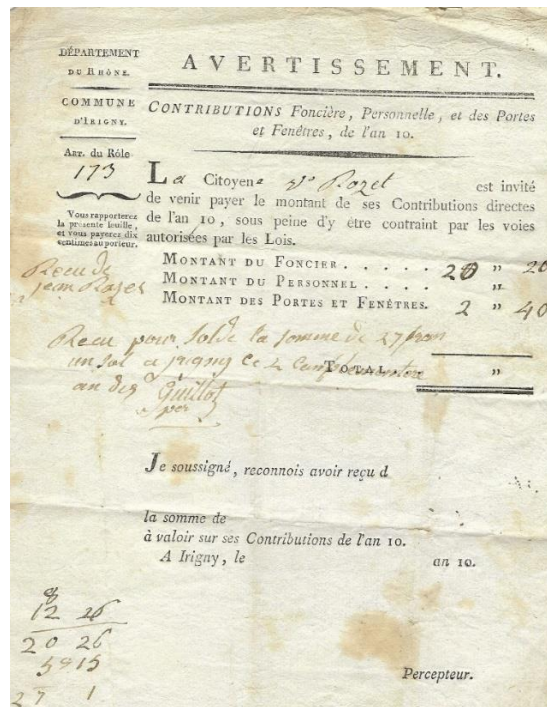 DÉPARTEMENT
DU RHÔNE.
COMMUNE
D'IRIGNY.
ART. du Rôle
173
Vous rapporterez
la présente feuille,
et vous payerez dix
centimes au porteur.
AVERTISSEMENT.
CONTRIBUTIONS Foncière, Personnelle, et des Portes
et Fenêtres, de l'an 10.
La Citoyene Ve Rozet est invité
de venir payer le montant de ses Contributions directes
de l'an 10, sous peine d'y être contraint par les voies
autorisées par les Lois.
MONTANT DU FONCIER . . . . . 20 " 20
MONTANT DU PERSONNEL . . . . "
MONTANT DES PORTES ET FENÊTRES. 2 " 40
Recu de
jean Rozet
Recu pour Solde la somme de 27 fran
un sol a jrigny ce 4
TOTAL . . . "
an dix Guillot
per
Je soussigné, reconnois avoir reçu d
la somme de
à valoir sur ses Contributions de l'an 10.
A Irigny, le an 10.
Percepteur.
8
12 26
20 26
27 1